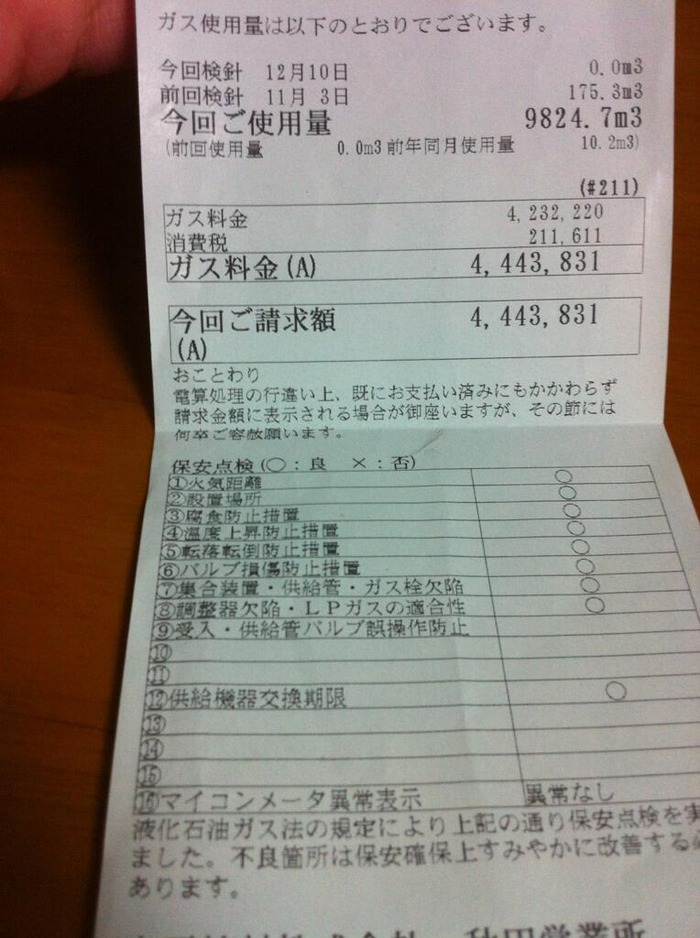 ガス使用量は以下のとおりでございます。
今回検針 12月10日 0.0m3
前回検針 11月 3日 175.3m3
今回ご使用量 9824.7m3
(前回使用量 0.0m3 前年同月使用量 10.2m3)
(#211)
ガス料金 4,232,220
消費税 211,611
ガス料金(A) 4,443,831
今回ご請求額 4,443,831
(A)
おことわり
電算処理の行違い上、既にお支払い済みにもかかわらず
請求金額に表示される場合が御座いますが、その節には
何卒ご容赦願います。
保安点検(○:良 ×:否)
①火気距離 ○
②設置場所 ○
③腐食防止措置 ○
④温度上昇防止措置 ○
⑤転落転倒防止措置 ○
⑥バルブ損傷防止措置 ○
⑦集合装置・供給管・ガス栓欠陥 ○
⑧調整器欠陥・LPガスの適合性 ○
⑨受入・供給管バルブ誤操作防止
⑩
⑪
⑫供給機器交換期限 ○
⑬
⑭
⑮
⑯マイコンメータ異常表示 異常なし
液化石油ガス法の規定により上記の通り保安点検を実
ました。不良箇所は保安確保上すみやかに改善する必
あります。
秋田営業所